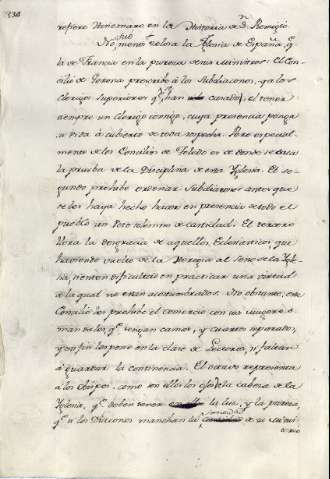 refiere Hincmaro en la Historia de Sn. Remigio
No fue menos zelosa la Iglesia de España, qe.
la de Francia en la pureza de sus Ministros. El Con-
cilio de Gerona prescribe à los Subdiaconos, qe. à los
Clerigos Superiores qe. se han casado, el tener
siempre un clerigo consigo, cuya presencia ponga
su vida à cubierto de toda sospecha. Pero especial-
mente de los Concilios de Toledo es de donde se saca
la prueba de la Disciplina de esta Iglesia. El se-
gundo prohibe ordenar Subdiaconos antes que
se les haya hecho hacer en presencia de todo el
pueblo un Voto solemne de castidad. El tercero
llora la desgracia de aquellos Eclesiasticos, que
haviendo vuelto de la Heregia al Seno de la Igle-
sia, sienten dificultad en practicar una virtud
de la qual no estan acostumbrados. No obstante, este
Concilio les prohibe el comercio con sus mugeres,
manda les qe. tengan camas, y cuartos aparte,
y en fin los pone en la clase de Lectores, si faltan
à guardar la continencia. El octavo representa
à los Obispos, como son ellos los ojos de la cabeza de la
Iglesia, qe. deben tener la luz, y la pureza,
qe. si los Diaconos manchan la Santidad de su